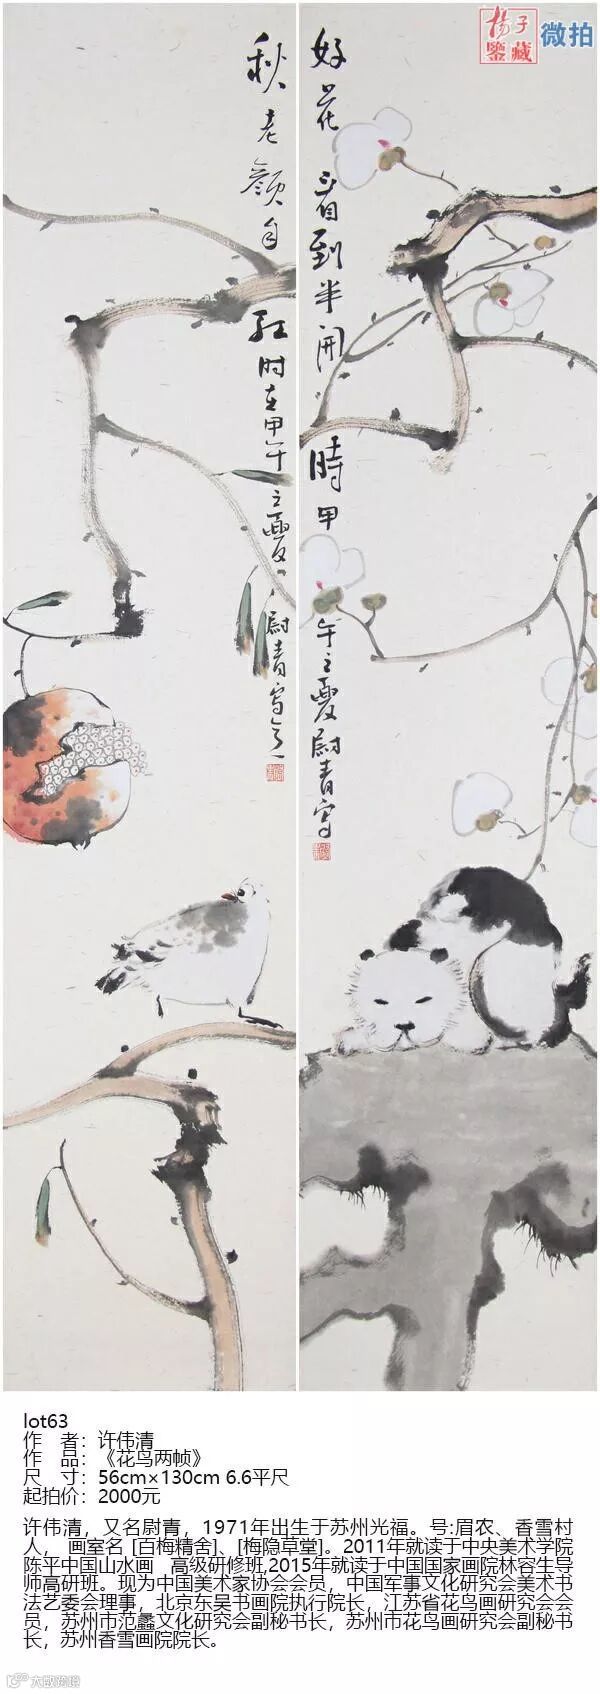 揚子
鑒藏
微拍
好花看到半开時甲
午之夏尉青写
秋老颜自
红时在甲午之夏尉青写之
lot63
作 者：许伟清
作 品：《花鸟两帧》
尺 寸：56cm×130cm 6.6平尺
起拍价：2000元
许伟清，又名尉青，1971年出生于苏州光福。号:眉农、香雪村
人， 画室名 [百梅精舍]、[梅隐草堂]。2011年就读于中央美术学院
陈平中国山水画 高级研修班,2015年就读于中国国家画院林容生导
师高研班。现为中国美术家协会会员，中国军事文化研究会美术书
法艺委会理事，北京东吴书画院执行院长，江苏省花鸟画研究会会
员，苏州市范蠡文化研究会副秘书长，苏州市花鸟画研究会副秘书
长，苏州香雪画院院长。
大数跨境